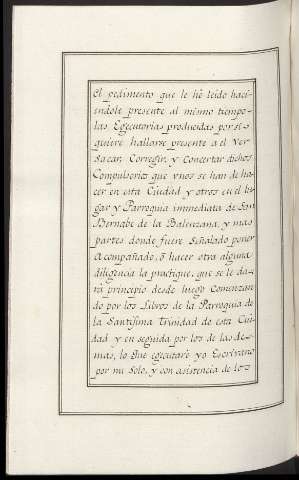 el pedimento que le hé leido haci-
endole presente al mismo tiempo-
las Egecutorias producidas por si-
quiere hallarse presente a el Ver
sacar, Corregir, y Concertar dichos
Compulsorios que unos se han de ha-
cer en esta Ciudad y otros en el lu-
gar y Parroquia immediata de San
Bernabe de la Balenzana, y mas
partes donde fuere Señalado poner
Acompañado, ó hacer otra alguna
diligencia la practique, que se le da-
rá principio desde luego Comenzan-
do por los Libros de la Parroquia de
la Santissima Trinidad de esta Ciu-
dad y en seguida por los de las de-
mas, lo que egecutaré yo Escrivano
por mi Solo, y con asistencia de los